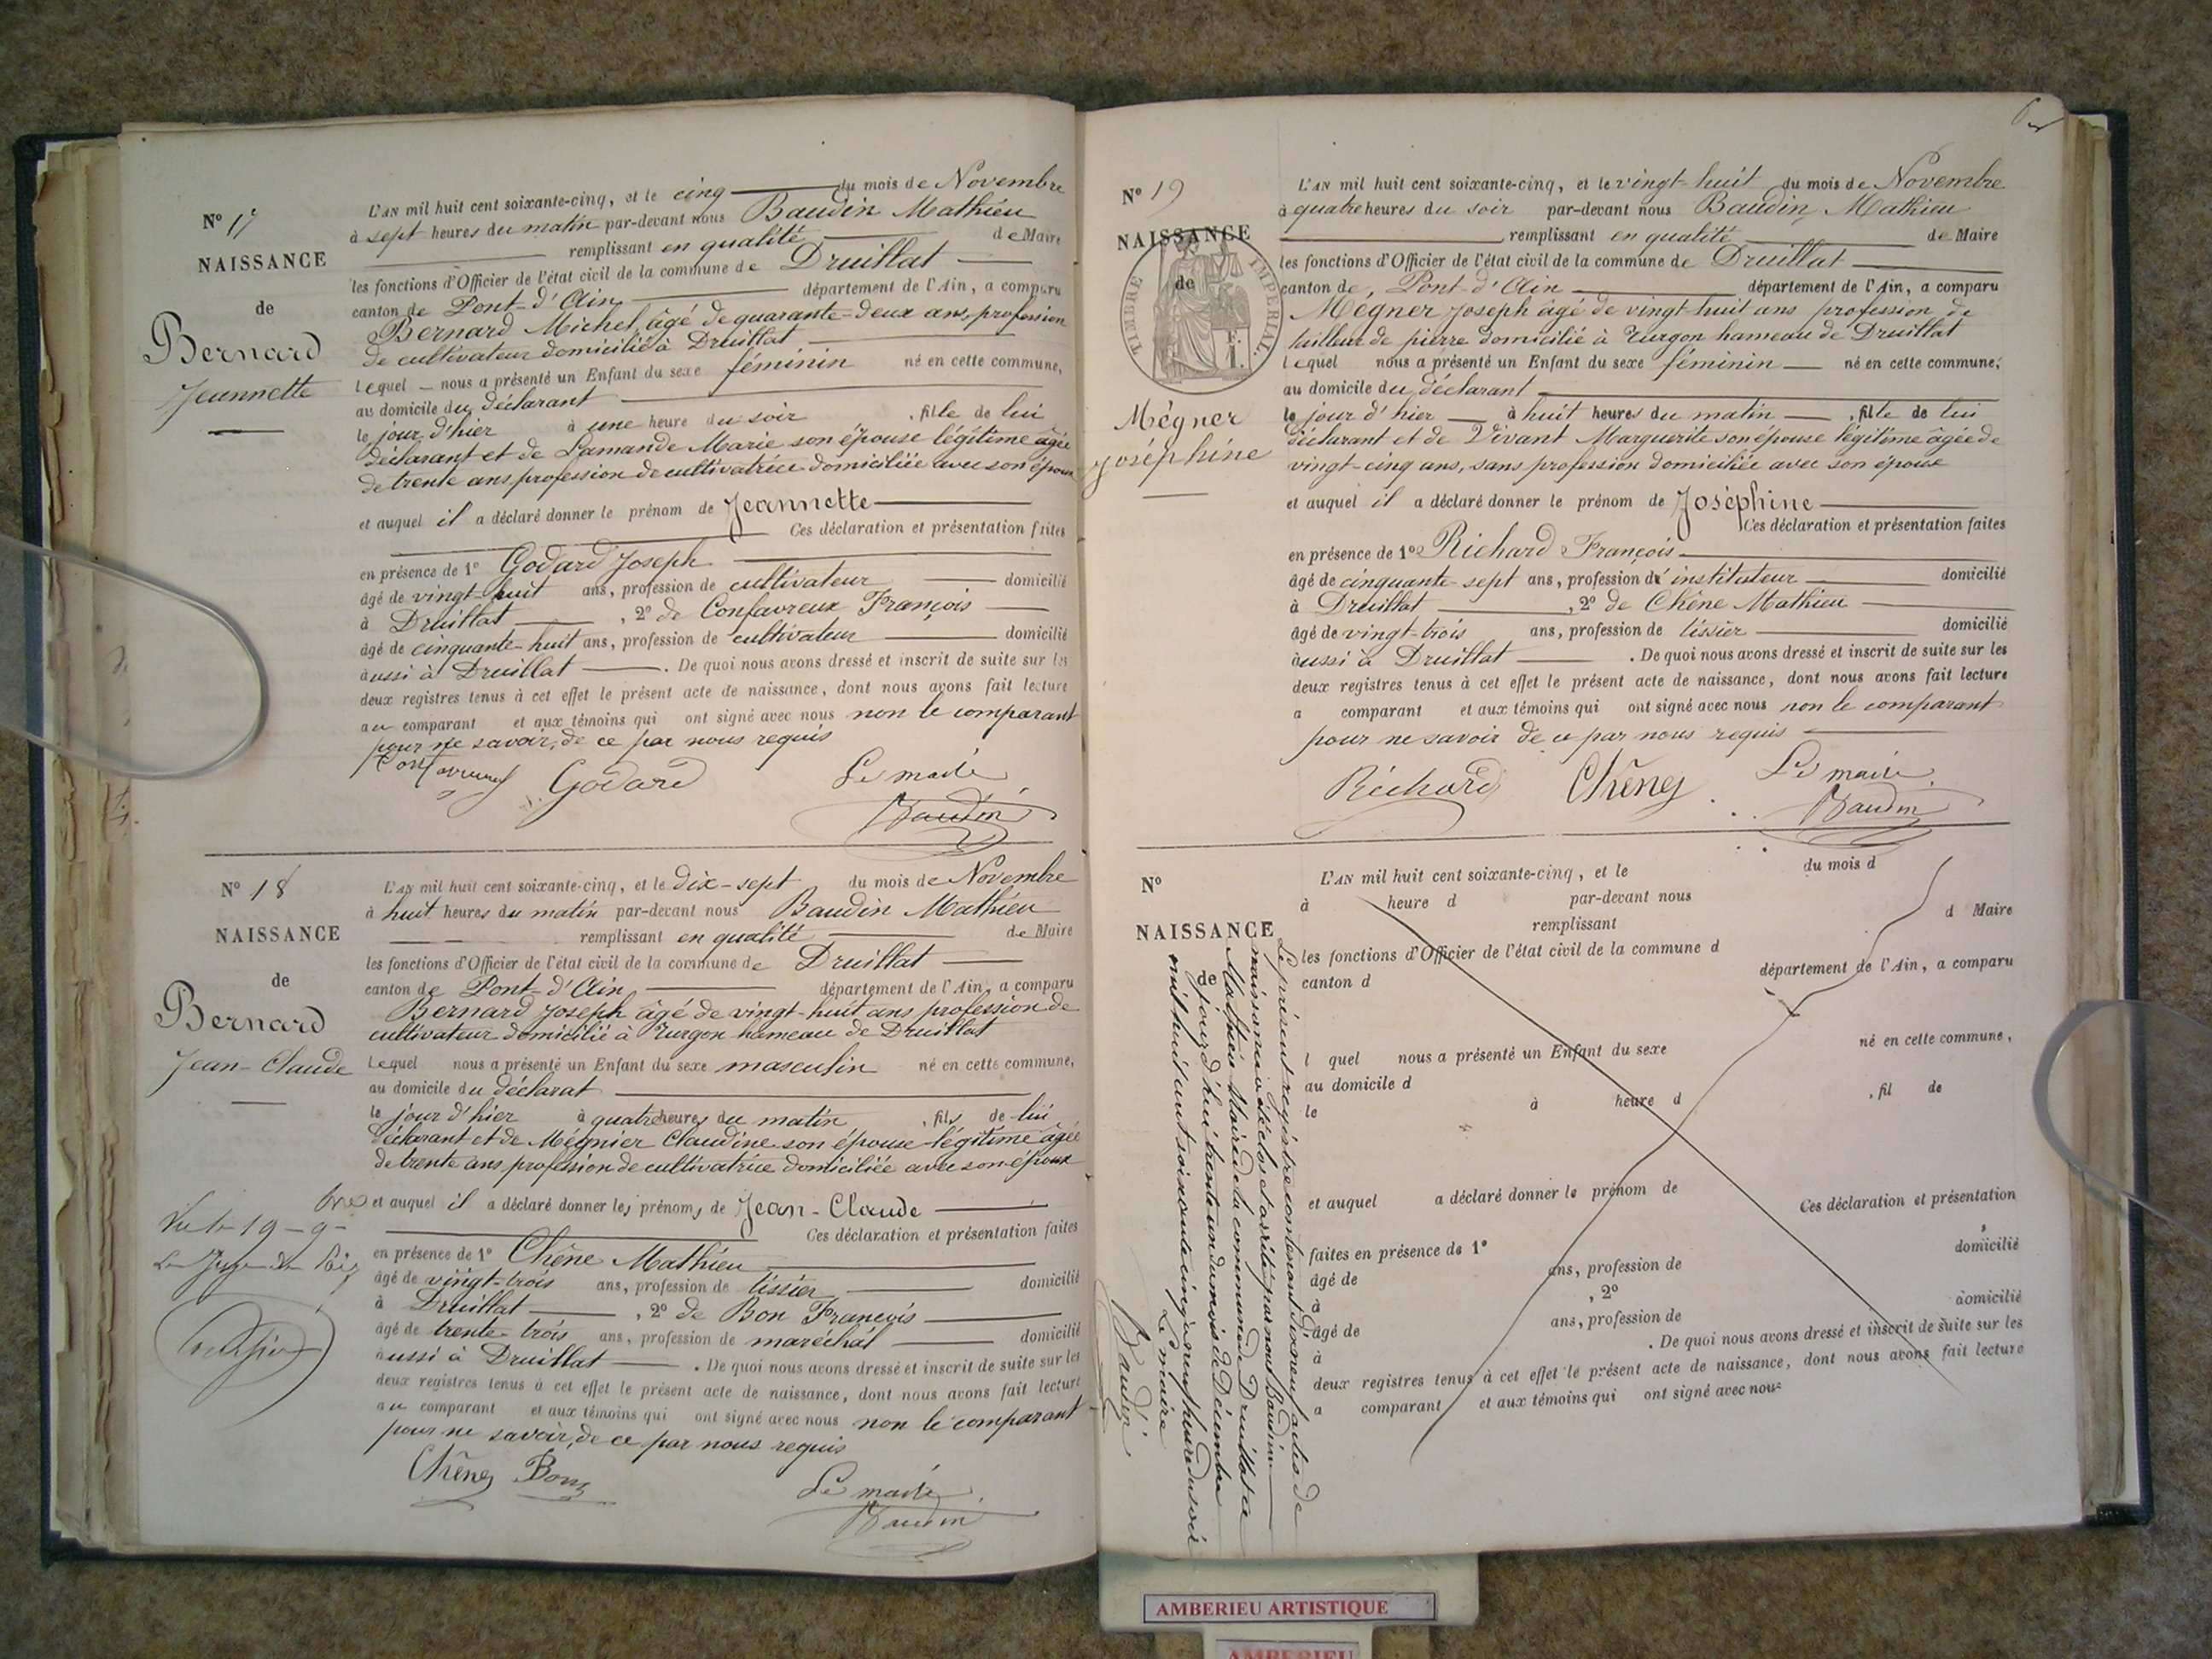 N° 17
NAISSANCE
de
Bernard
Jeannette
L'AN mil huit cent soixante-cinq, et le cinq du mois de Novembre
à sept heures du matin par-devant nous Baudin Mathieu
remplissant en qualité de Maire
les fonctions d'Officier de l'état civil de la commune de Druillat
canton de Pont-d'Ain département de l'Ain, a comparu
Bernard Michel, âgé de quarante-deux ans, profession
de cultivateur domicilié à Druillat
lequel nous a présenté un Enfant du sexe féminin né en cette commune,
au domicile du déclarant
le jour d'hier à une heure du soir, fille de lui
déclarant et de Lamande Marie son épouse légitime âgée
de trente ans, profession de cultivatrice domiciliée avec son époux
et auquel il a déclaré donner le prénom de Jeannette
Ces déclaration et présentation faites
en présence de 1° Godard Joseph
âgé de vingt-huit ans, profession de cultivateur domicilié
à Druillat, 2° de Confavreux François
âgé de cinquante-huit ans, profession de cultivateur domicilié
aussi à Druillat. De quoi nous avons dressé et inscrit de suite sur les
deux registres tenus à cet effet le présent acte de naissance, dont nous avons fait lecture
au comparant et aux témoins qui ont signé avec nous non le comparant
pour ne savoir, de ce par nous requis
Confavreux Godard Le maire
Baudin
N° 18
NAISSANCE
de
Bernard
Jean-Claude
L'AN mil huit cent soixante-cinq, et le dix-sept du mois de Novembre
à huit heures du matin par-devant nous Baudin Mathieu
remplissant en qualité de Maire
les fonctions d'Officier de l'état civil de la commune de Druillat
canton de Pont-d'Ain département de l'Ain, a comparu
Bernard Joseph âgé de vingt-huit ans profession de
cultivateur domicilié à Rurgon hameau de Druillat
lequel nous a présenté un Enfant du sexe masculin né en cette commune,
au domicile du déclarat
le jour d'hier à quatre heures du matin, fils de lui
déclarant et de Mégnier Claudine son épouse légitime âgée
de trente ans profession de cultivatrice domiciliée avec son époux
et auquel il a déclaré donner les prénoms de Jean-Claude
Ces déclaration et présentation faites
en présence de 1° Chêne Mathieu
âgé de vingt-trois ans, profession de tissier domicilié
à Druillat, 2° de Bon François
âgé de trente-trois ans, profession de maréchal domicilié
aussi à Druillat. De quoi nous avons dressé et inscrit de suite sur les
deux registres tenus à cet effet le présent acte de naissance, dont nous avons fait lecture
au comparant et aux témoins qui ont signé avec nous non le comparant
pour ne savoir, de ce par nous requis
Chêne Bon Le maire
Baudin
Vu le 19-9-
Le Juge de Paix
N° 19
NAISSANCE
de
TIMBRE IMPERIAL
Mégner
Joséphine
L'AN mil huit cent soixante-cinq, et le vingt-huit du mois de Novembre
à quatre heures du soir par-devant nous Baudin Mathieu
remplissant en qualité de Maire
les fonctions d'Officier de l'état civil de la commune de Druillat
canton de Pont-d'Ain département de l'Ain, a comparu
Mégner Joseph âgé de vingt-huit ans profession de
tailleur de pierre domicilié à Rurgon hameau de Druillat
lequel nous a présenté un Enfant du sexe féminin né en cette commune,
au domicile du déclarant
le jour d'hier à huit heures du matin, fille de lui
déclarant et de Vivant Marguerite son épouse légitime âgée de
vingt-cinq ans, sans profession domiciliée avec son époux
et auquel il a déclaré donner le prénom de Joséphine
Ces déclaration et présentation faites
en présence de 1° Richard François
âgé de cinquante-sept ans, profession d'instituteur domicilié
à Druillat, 2° de Chêne Mathieu
âgé de vingt-trois ans, profession de tissier domicilié
aussi à Druillat. De quoi nous avons dressé et inscrit de suite sur les
deux registres tenus à cet effet le présent acte de naissance, dont nous avons fait lecture
a comparant et aux témoins qui ont signé avec nous non le comparant
pour ne savoir de ce par nous requis
Richard Chêne Le maire
Baudin
N°
NAISSANCE
de
L'AN mil huit cent soixante-cinq, et le du mois d
à heure d par-devant nous
remplissant d Maire
les fonctions d'Officier de l'état civil de la commune d
canton d département de l'Ain, a comparu
l quel nous a présenté un Enfant du sexe né en cette commune,
au domicile d
le à heure d, fil de
et auquel a déclaré donner le prénom de
Ces déclaration et présentation
faites en présence de 1° domicilié
âgé de ans, profession de
à, 2°
âgé de ans, profession de domicilié
à. De quoi nous avons dressé et inscrit de suite sur les
deux registres tenus à cet effet le présent acte de naissance, dont nous avons fait lecture
a comparant et aux témoins qui ont signé avec nous
Le présent registre contenant dixneuf actes de
naissance a été clos et arrêté par nous Baudin
Mathieu Maire de la commune de Druillat ce
jourd'hui trente un du mois de Décembre
mil huit cent soixante cinq à neuf heures du soir
Le maire
Baudin
AMBERIEU ARTISTIQUE
AMBERIEU